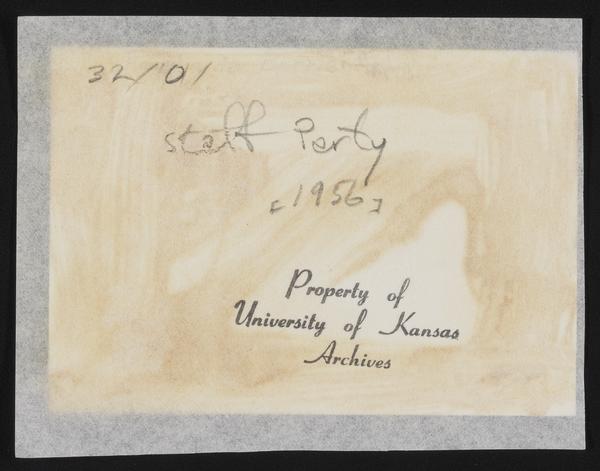 32/0/
Staff Party
[1956]
Property of
University of Kansas
Archives